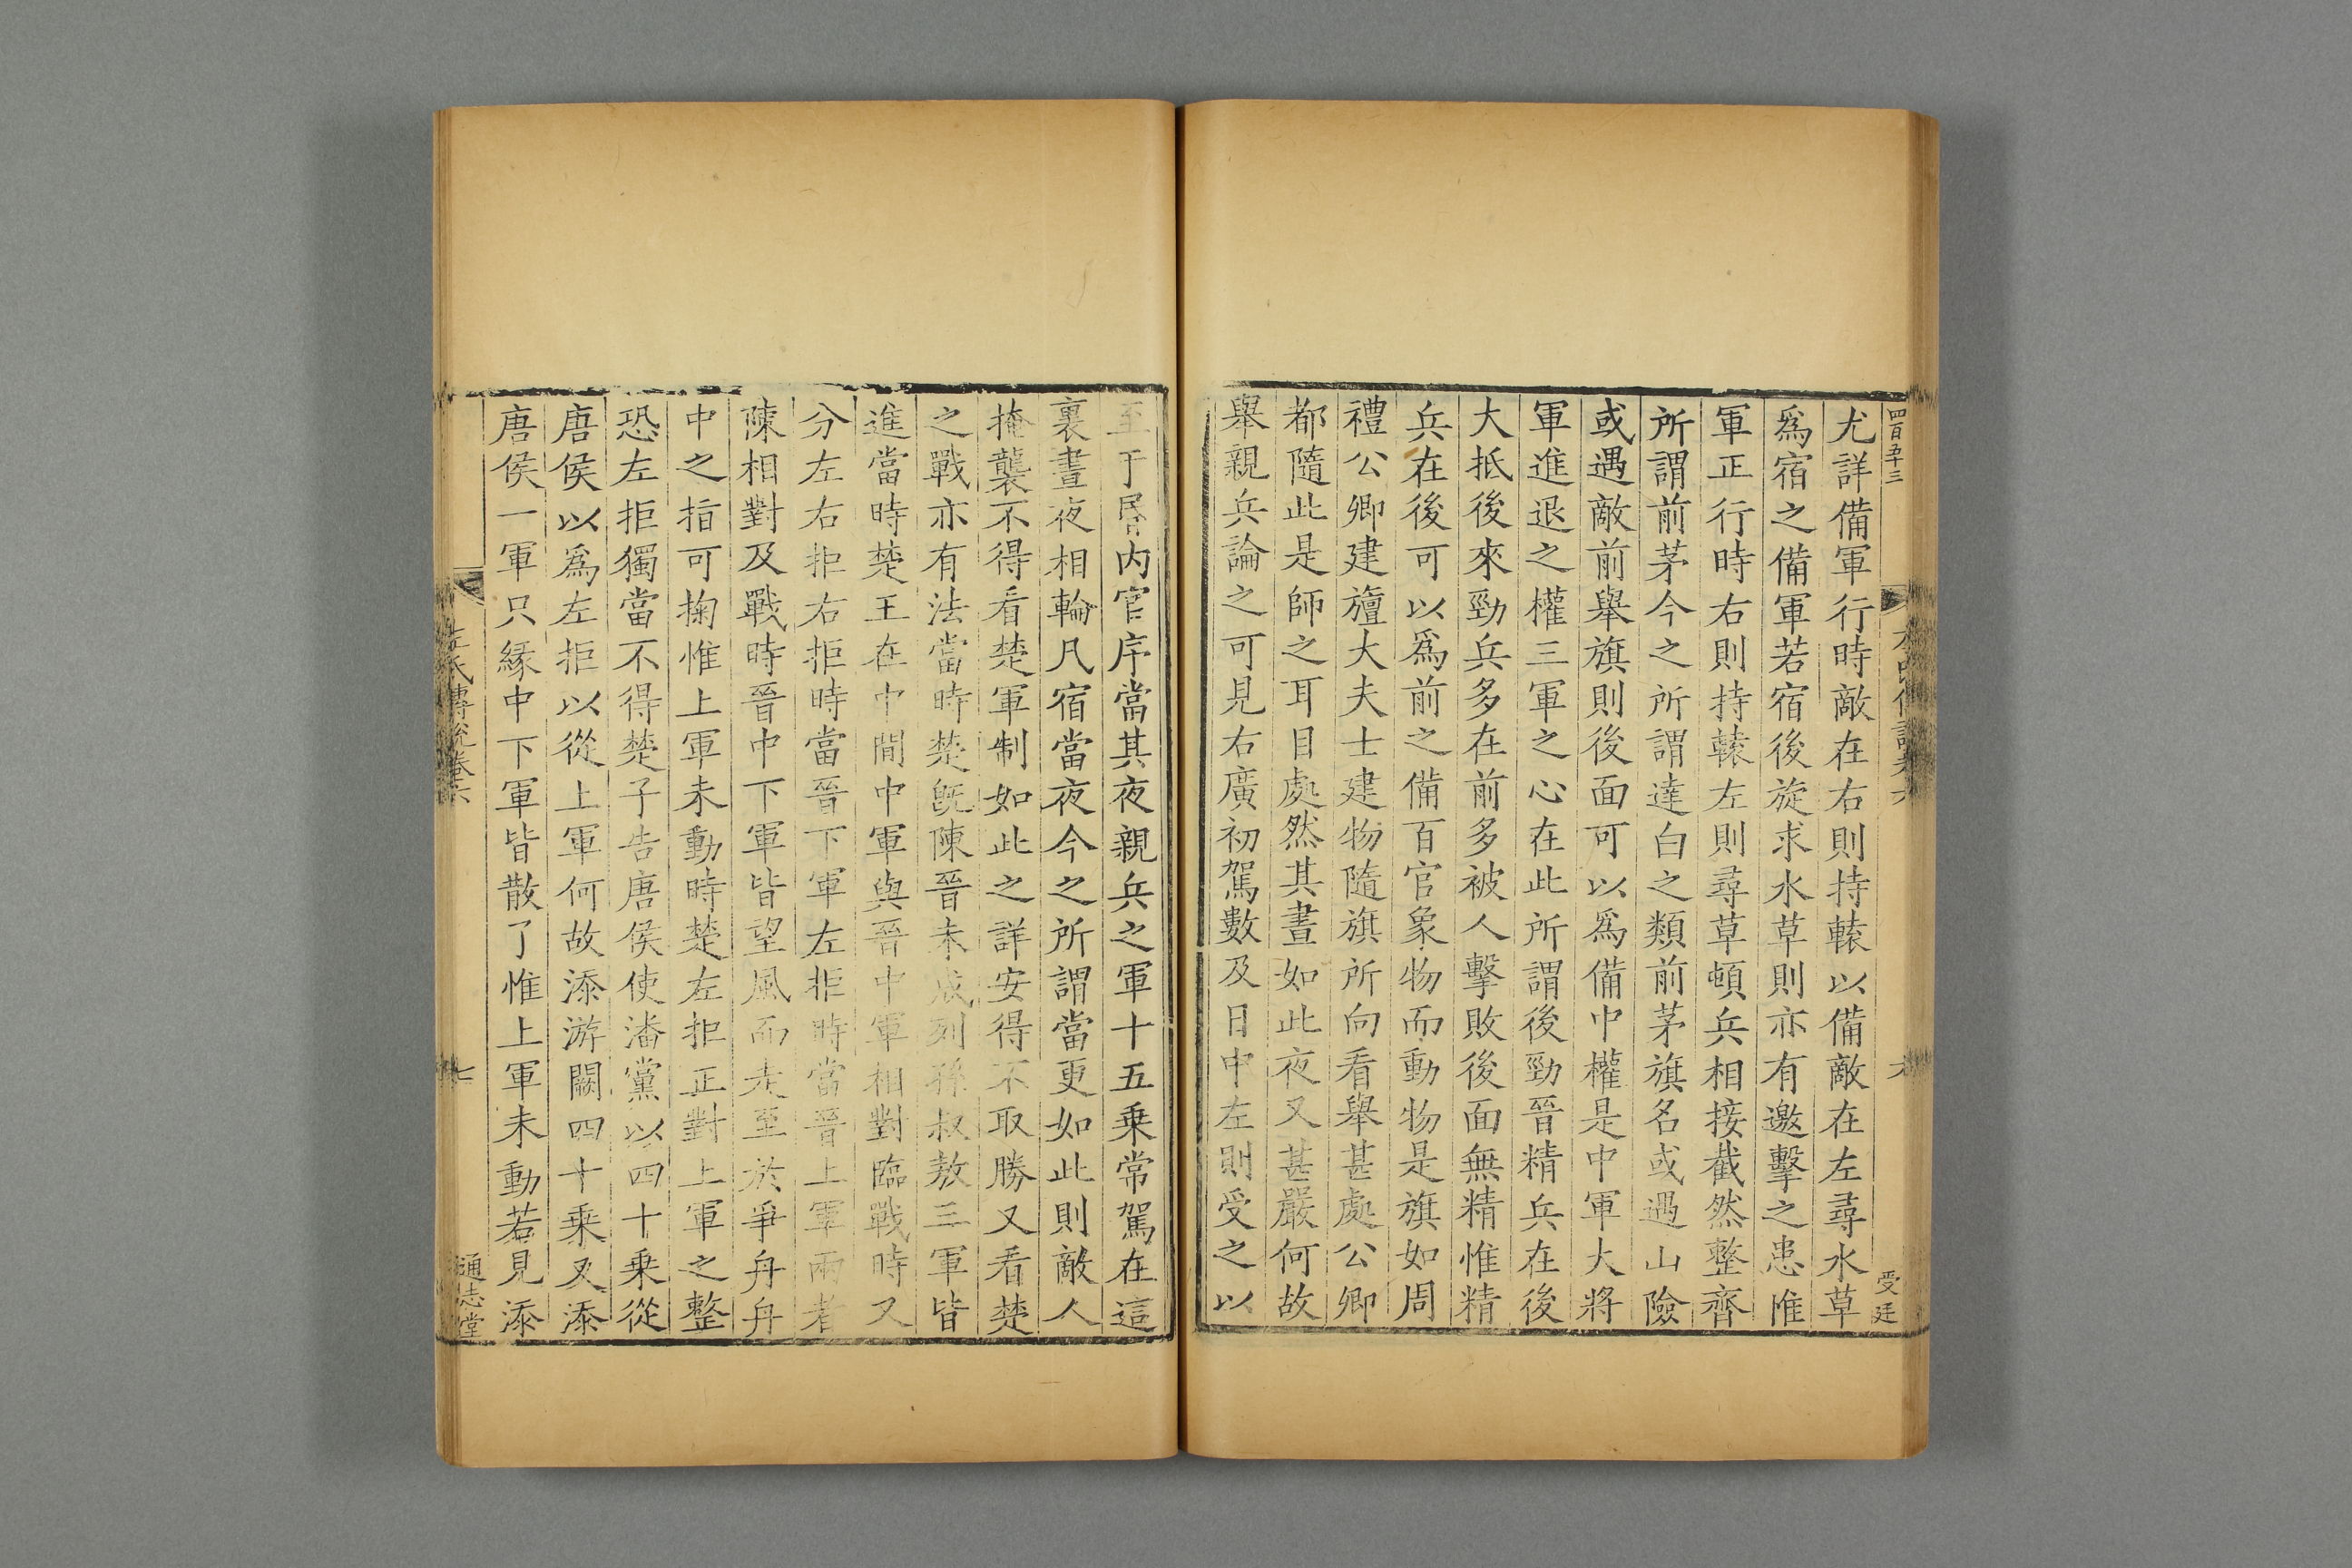 四百五十三
受廷
尤詳備軍行時敵在右則持轅以備敵在左尋水草
爲宿之備軍若宿後旋求水草則亦有邀擊之患惟
軍正行時右則持轅左則尋草頓兵相接截然整齊
所謂前茅今之所謂達白之類前茅旗名或遇山險
或遇敵前舉旗則後面可以爲備中權是中軍大將
軍進退之權三軍之心在此所謂後勁晉精兵在後
大抵後來勁兵多在前多被人擊敗後面無精惟精
兵在後可以爲前之備百官象物而動物是旗如周
禮公卿建旜大夫士建物隨旗所向看舉甚處公卿
都隨此是師之耳目處然其晝如此夜又甚嚴何故
舉親兵論之可見右廣初駕數及日中左則受之以
至于昬内官序當其夜親兵之軍十五乗常駕在這
裏晝夜相輪凡宿當夜今之所謂當更如此則敵人
掩襲不得看楚軍制如此之詳安得不取勝又看楚
之戰亦有法當時楚旣陳晉未成列孫叔敖三軍皆
進當時楚王在中間中軍與晉中軍相對臨戰時又
分左右拒右拒時當晉下軍左拒時當晉上軍兩者
陳相對及戰時晉中下軍皆望風而走至於爭舟舟
中之指可掬惟上軍未動時楚左拒正對上軍之整
恐左拒獨當不得楚子告唐侯使潘黨以四十乗從
唐侯以爲左拒以從上軍何故添游闕四十乗又添
唐侯一軍只緣中下軍皆散了惟上軍未動若見添
左氏傳說卷六
七
通志堂